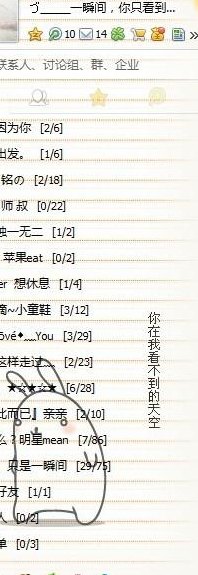 づ_____一瞬间，你只看到...
10 14
联系人、讨论组、群、企业
因为你 [2/6]
出发。 [1/6]
铭の [2/18]
师 叔 [0/22]
独一无二 [1/2]
苹果eat [0/2]
er 想休息 [1/4]
滴~小童鞋 [3/12]
ōvé♦﹏You [3/29]
这样走过﹏ [2/23]
★☆★☆★ [6/28]
比而已』亲亲 [2/10]
么？明星mean [7/86]
只是一瞬间 [29/75]
好友 [1/1]
人 [0/2]
单 [0/3]
你在我看不到的天空